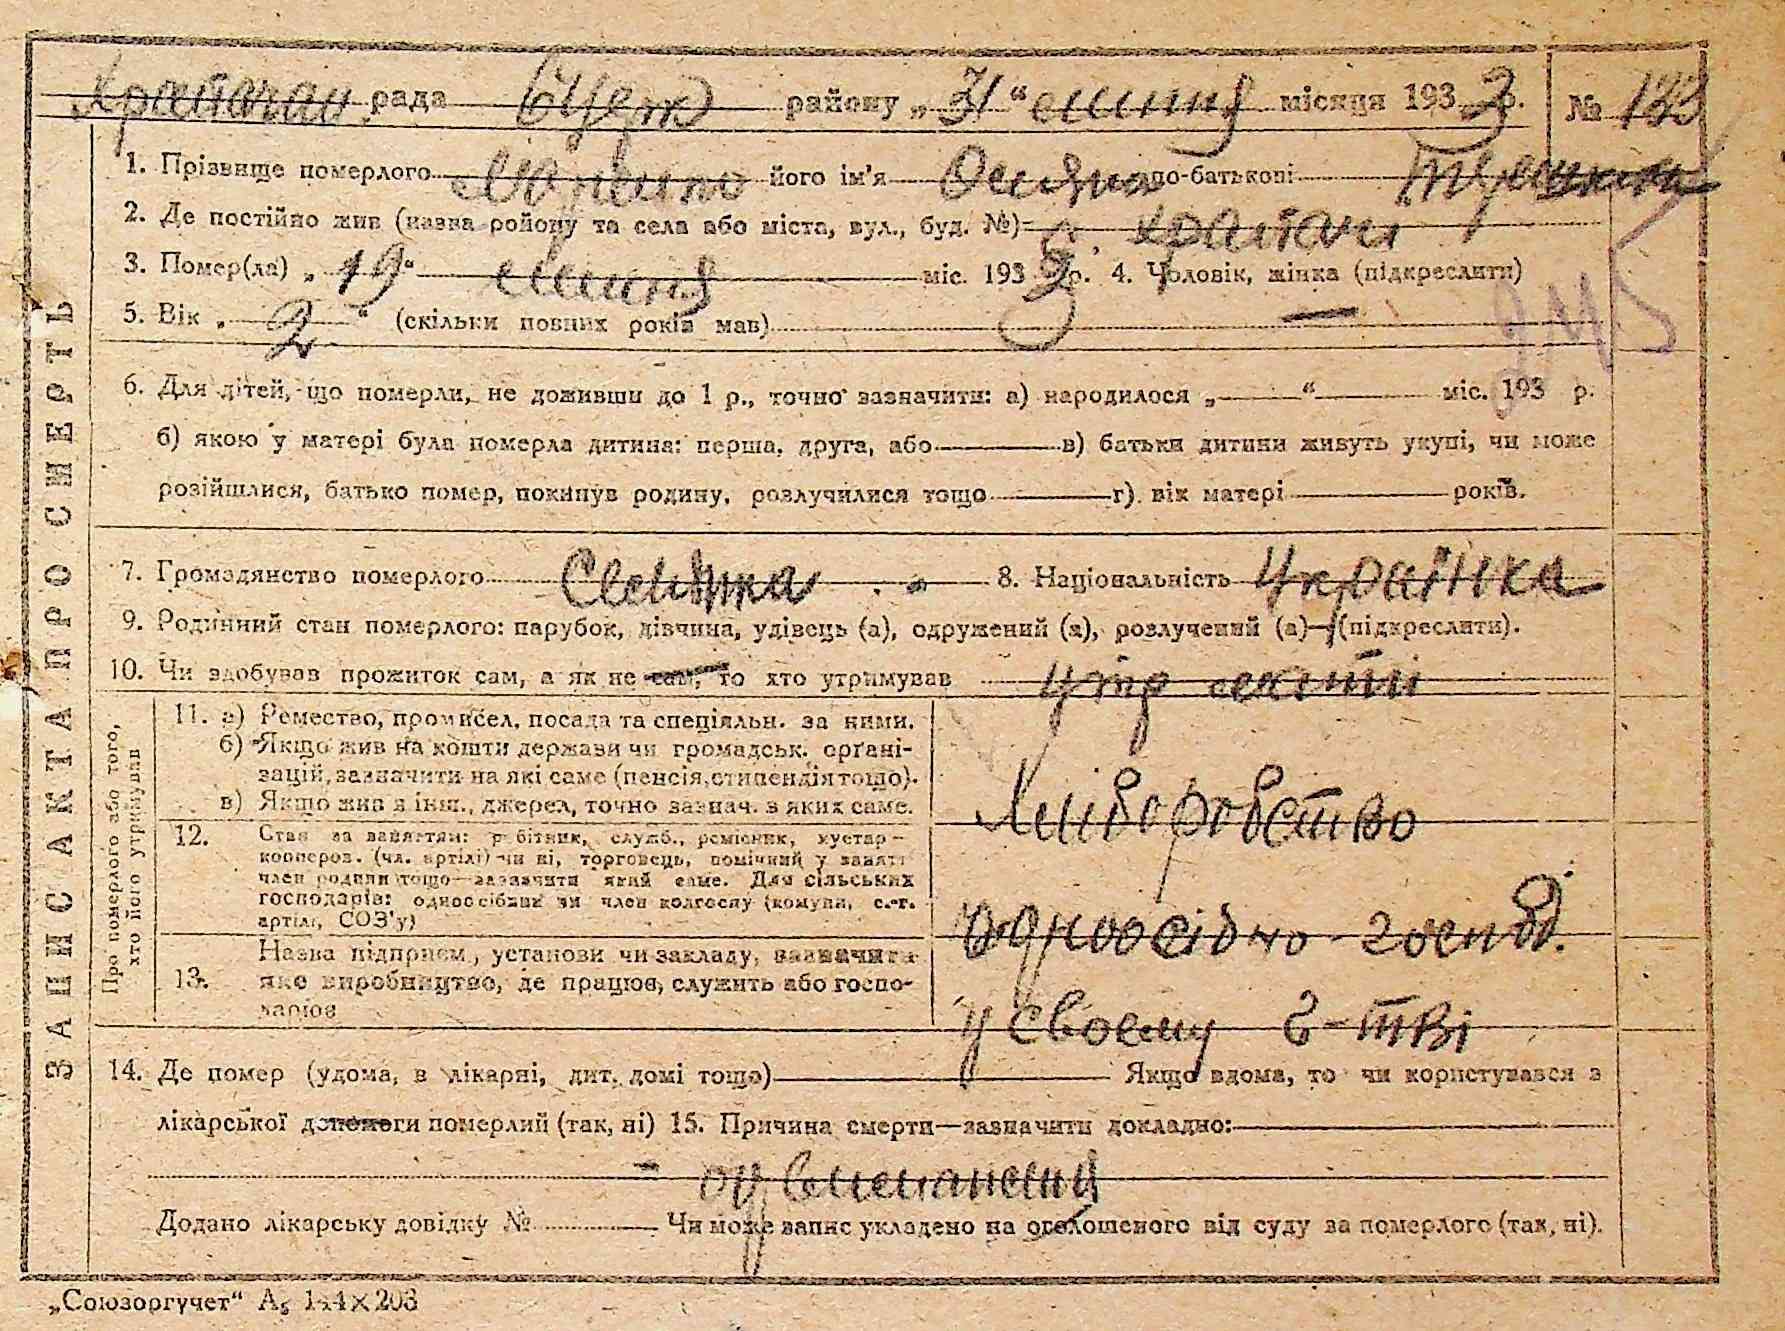 Храпачан. рада Б Церк району „31“ липня місяця 1933 р. № 133
1. Прізвище померлого його ім'я по-батькові
2. Де постійно жив (назва району та села або міста, вул., буд. №) с. Храпачи
3. Помер(ла) „19“ липня міс. 1933 р. 4. Чоловік, жінка (підкреслити)
5. Вік „2“ (скільки повних років мав)
6. Для дітей, що померли, не доживши до 1 р., точно зазначити: а) народилося „ “ міс. 193 р.
б) якою у матері була померла дитина: перша, друга, або в) батьки дитини живуть укупі, чи може
розійшлися, батько помер, покинув родину, розлучилися тощо г) вік матері років.
7. Громадянство померлого 8. Національність Українка
9. Родинний стан померлого: парубок, дівчина, удівець (а), одружений (а), розлучений (а) (підкреслити).
10. Чи здобував прожиток сам, а як не сам, то хто утримував утр
ЗАПИС АКТА ПРО СМЕРТЬ
Про померлого або того, хто його утримував
11. а) Ремество, промисел, посада та спеціяльн. за ними.
б) Якщо жив на кошти держави чи громадськ. органі-
зацій, зазначити на які саме (пенсія, стипендія тощо).
в) Якщо жив з інш., джерел, точно зазнач. з яких саме.
Хліборобство
12. Стан за заняттям: робітник, служб., ремісник, кустар-
кооперов. (чл. артілі) чи ні, торговець, помічний у занятті
член родини тощо—зазначити який саме. Для сільських
господарів: одноосібник чи член колгоспу (комуни, с.-г.
артілі, СОЗ'у)
Одноосібно-господ.
13. Назва підприєм., установи чи закладу, зазначити
яке виробництво, де працює, служить або госпо-
дарює
у своєму г-тві
14. Де помер (удома, в лікарні, дит. домі тощо) Якщо вдома, то чи користувався з
лікарської допомоги померлий (так, ні) 15. Причина смерти—зазначити докладно:
Додано лікарську довідку № Чи може запис укладено на оголошеного від суду за померлого (так, ні).
„Союзоргучет“ А₅ 144×203